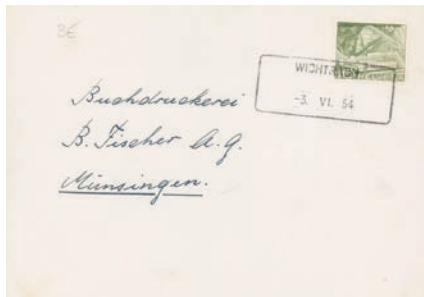 BE
WICHTRACH
-3. VI. 54
Buchdruckerei
B. Fischer A.G.
Münsingen.